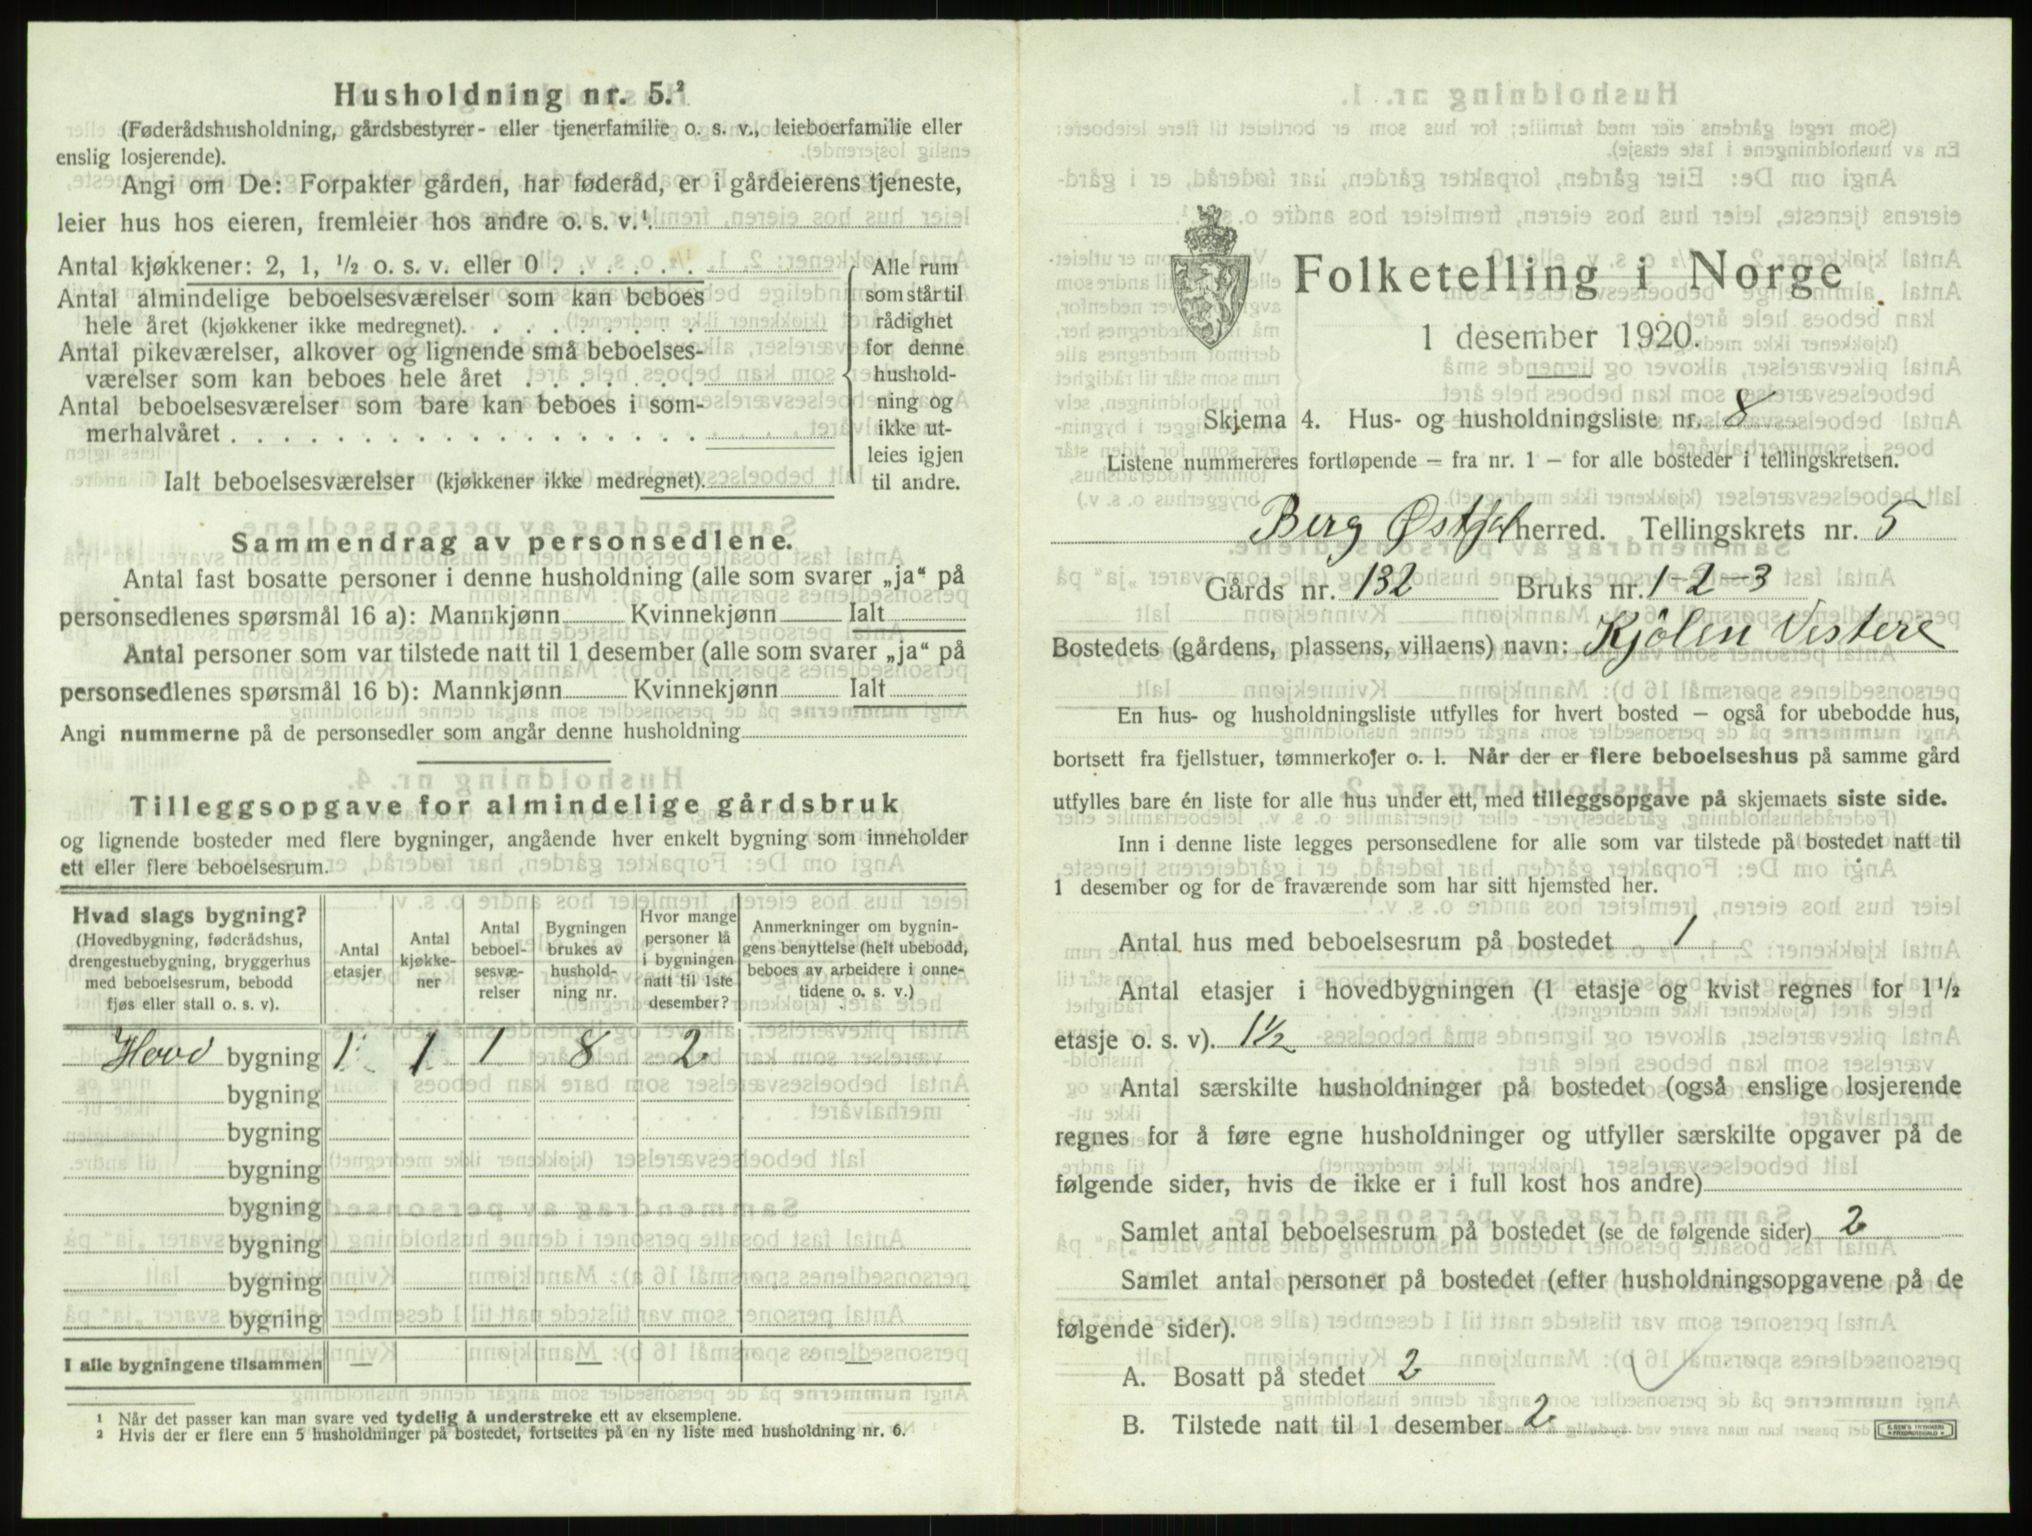 Husholdning nr. 5.²
(Føderådshusholdning, gårdsbestyrer- eller tjenerfamilie o. s. v., leieboerfamilie eller
enslig losjerende).
Angi om De: Forpakter gården, har føderåd, er i gårdeierens tjeneste,
leier hus hos eieren, fremleier hos andre o. s. v.¹
Antal kjøkkener: 2, 1, ½ o. s. v. eller 0 . . . . . .
Antal almindelige beboelsesværelser som kan beboes
hele året (kjøkkener ikke medregnet). . . . . . . . .
Antal pikeværelser, alkover og lignende små beboelses-
værelser som kan beboes hele året . . . . . . .
Antal beboelsesværelser som bare kan beboes i som-
merhalvåret . . . . . . . . . . . . . . . . . .
Ialt beboelsesværelser (kjøkkener ikke medregnet).
Alle rum
som står til
rådighet
for denne
hushold-
ning og
ikke ut-
leies igjen
til andre.
Sammendrag av personsedlene.
Antal fast bosatte personer i denne husholdning (alle som svarer „ja“ på
personsedlenes spørsmål 16 a): Mannkjønn Kvinnekjønn Ialt
Antal personer som var tilstede natt til 1 desember (alle som svarer „ja“ på
personsedlenes spørsmål 16 b): Mannkjønn Kvinnekjønn Ialt
Angi nummerne på de personsedler som angår denne husholdning
Tilleggsopgave for almindelige gårdsbruk
og lignende bosteder med flere bygninger, angående hver enkelt bygning som inneholder
ett eller flere beboelsesrum.
Hvad slags bygning?
(Hovedbygning, føderådshus,
drengestuebygning, bryggerhus
med beboelsesrum, bebodd
fjøs eller stall o. s. v).
Antal
etasjer
Antal
kjøkke-
ner
Antal
beboel-
sesvæ-
relser
Bygningen
brukes av
hushold-
ning nr.
Hvor mange
personer lå
i bygningen
natt til 1ste
desember?
Anmerkninger om bygnin-
gens benyttelse (helt ubebodd,
beboes av arbeidere i onne-
tidene o. s. v.)
Hovd bygning 1 1 1 8 2
bygning
bygning
bygning
bygning
bygning
bygning
bygning
I alle bygningene tilsammen — — —
¹ Når det passer kan man svare ved tydelig å understreke ett av eksemplene.
² Hvis der er flere enn 5 husholdninger på bostedet, fortsettes på en ny liste med husholdning nr. 6.
Folketelling i Norge
1 desember 1920.
Skjema 4. Hus- og husholdningsliste nr. 8
Listene nummereres fortløpende – fra nr. 1 – for alle bosteder i tellingskretsen.
Berg Østfol herred. Tellingskrets nr. 5
Gårds nr. 132 Bruks nr. 1-2-3
Bostedets (gårdens, plassens, villaens) navn: Kjölen Vestere
En hus- og husholdningsliste utfylles for hvert bosted – også for ubebodde hus,
bortsett fra fjellstuer, tømmerkojer o. l. Når der er flere beboelseshus på samme gård
utfylles bare én liste for alle hus under ett, med tilleggsopgave på skjemaets siste side.
Inn i denne liste legges personsedlene for alle som var tilstede på bostedet natt til
1 desember og for de fraværende som har sitt hjemsted her.
Antal hus med beboelsesrum på bostedet 1
Antal etasjer i hovedbygningen (1 etasje og kvist regnes for 1½
etasje o. s. v). 1½
Antal særskilte husholdninger på bostedet (også enslige losjerende
regnes for å føre egne husholdninger og utfyller særskilte opgaver på de
følgende sider, hvis de ikke er i full kost hos andre)
Samlet antal beboelsesrum på bostedet (se de følgende sider) 2
Samlet antal personer på bostedet (efter husholdningsopgavene på de
følgende sider).
A. Bosatt på stedet 2
B. Tilstede natt til 1 desember 2